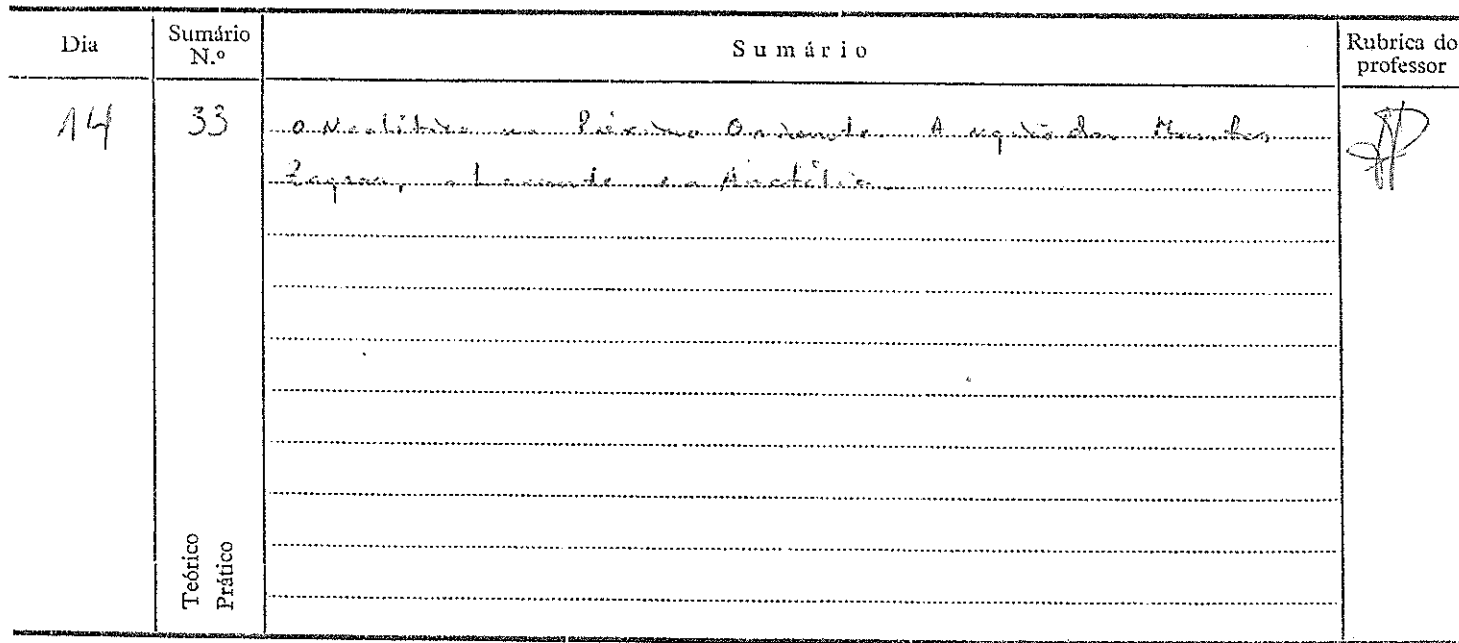 Dia
Sumário N.º
Sumário
Rubrica do professor
14
33
O Neolítico no Próximo Oriente. A região dos Montes
Zagros, o Levante e a Anatólia.
Teórico
Prático